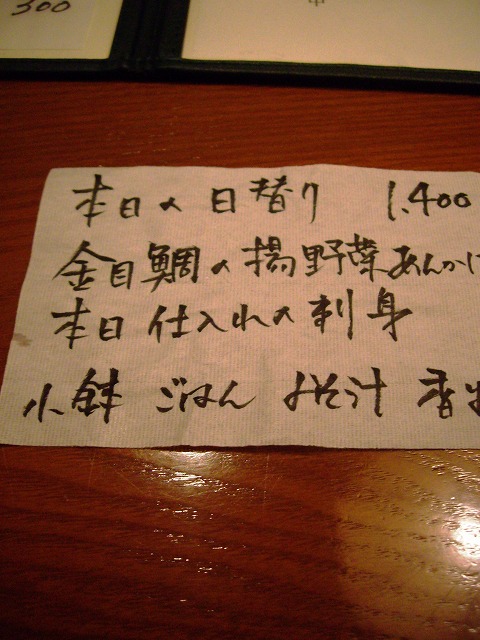 300
本日の日替り 1,400
金目鯛の揚野菜あんかけ
本日仕入れの刺身
小鉢 ごはん みそ汁 香物